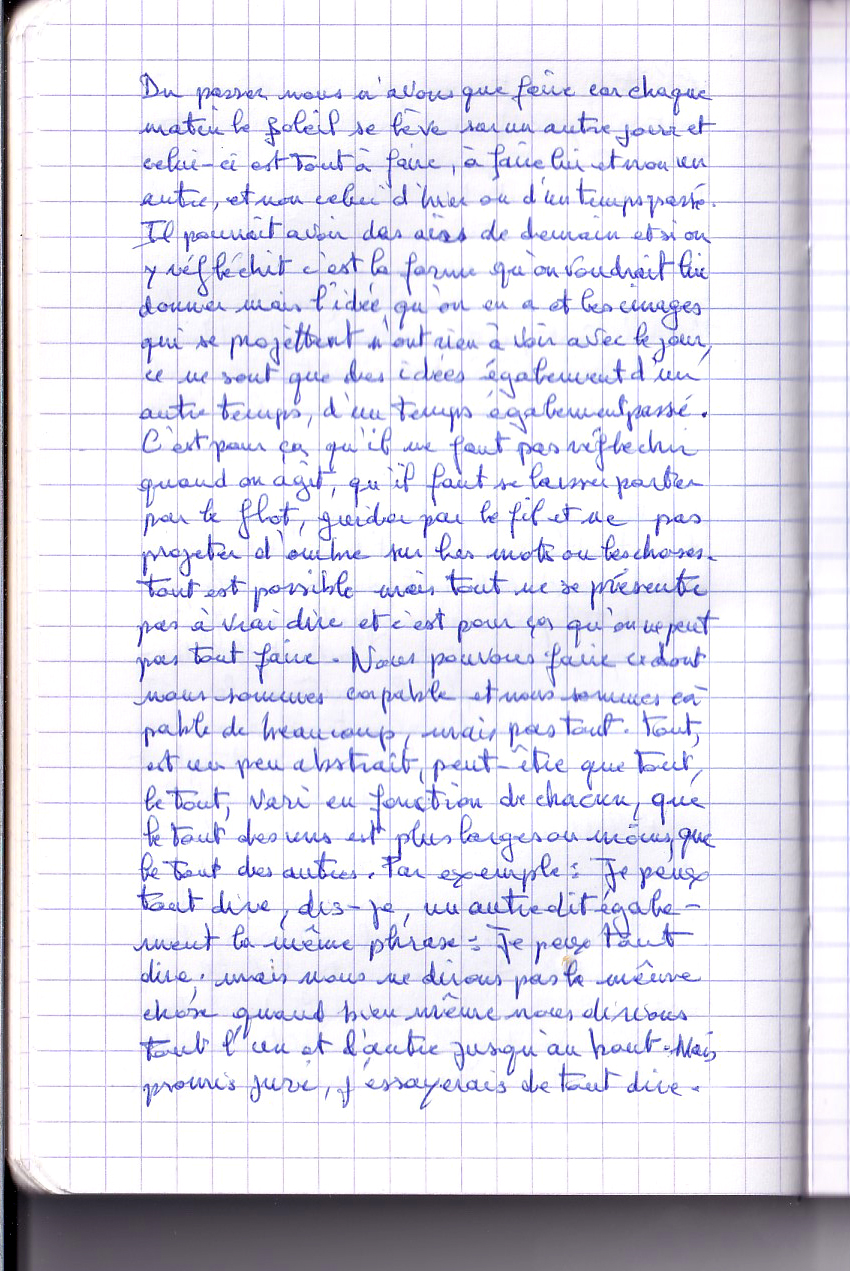 Du passer nous n'avons que faire car chaque
matin le soleil se lève sur un autre jour et
celui-ci est tout à faire, à faire lui et non un
autre, et non celui d'hier ou d'un temps passé.
Il pourrait avoir des airs de demain et si on
y réfléchit c'est la forme qu'on voudrait lui
donner mais l'idée qu'on en a et les images
qui se projettent n'ont rien à voir avec le jour,
ce ne sont que des idées également d'un
autre temps, d'un temps également passé.
C'est pour ça qu'il ne faut pas réfléchir
quand on agit, qu'il faut se laisser porter
par le flot, guider par le fil et ne pas
projeter d'ombre sur les mots ou les choses.
tout est possible mais tout ne se présente
pas à vrai dire et c'est pour ça qu'on ne peut
pas tout faire. Nous pouvons faire ce dont
nous sommes capable et nous sommes ca
pable de beaucoup, mais pas tout. Tout,
est un peu abstrait, peut-être que tout,
le tout, vari en fonction de chacun, que
le tout des uns est plus larges ou moins, que
le tout des autres. Par exemple : Je peux
tout dire, dis-je, un autre dit égale-
ment la même phrase : Je peux tout
dire, mais nous ne dirons pas la même
chose quand bien même nous dirions
tout l'un et l'autre jusqu'au bout. Mais
promis juré, j'essayerais de tout dire.